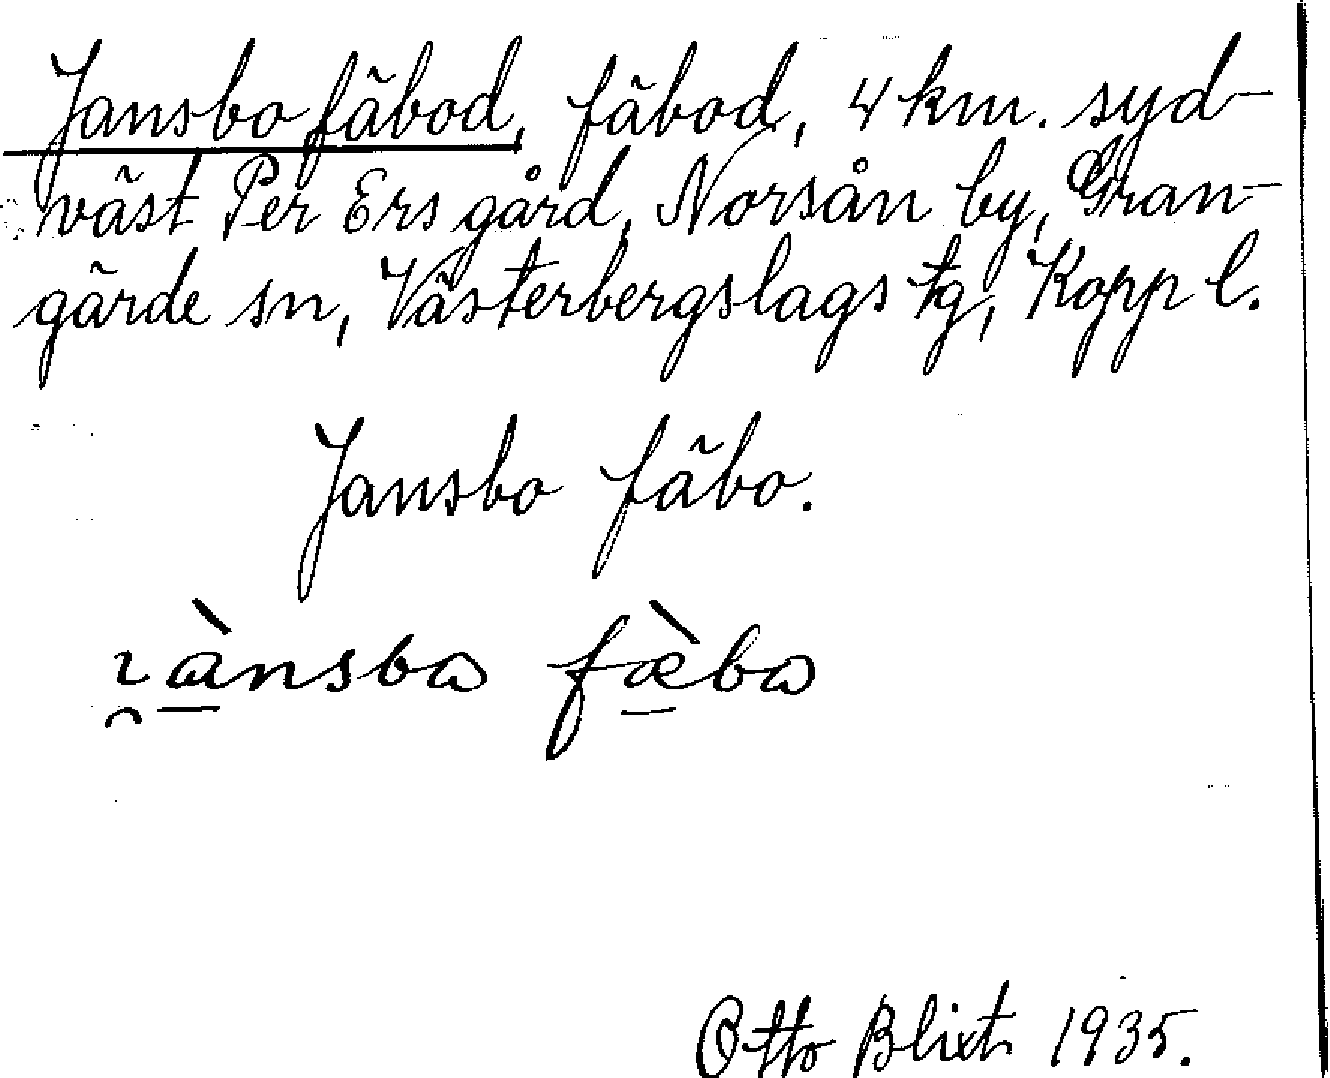 Jansbo fäbod, fäbod, 4 km. syd-
väst Per Ers gård, Norsån by, Gran-
gärde sn, Västerbergslags tg, Kopp l.
Jansbo fäbo.
ı̯ànsbɷ fæ̀bɷ
Otto Blixt 1935.